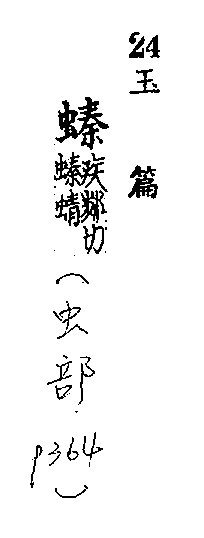 24
玉篇
螓疾鄰切螓蜻
(虫部
p364)